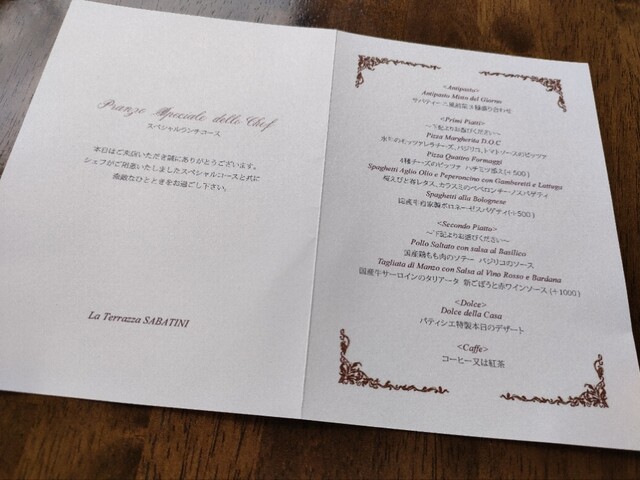 Pranzo Speciale dello Chef
スペシャルランチコース
本日はご来店いただき誠にありがとうございます。
シェフがご用意いたしましたスペシャルコースと共に
素敵なひとときをお過ごし下さい。
La Terrazza SABATINI
<Antipasto>
Antipasto Misto del Giorno
サバティーニ風前菜3種盛り合わせ
<Primi Piatti>
～下記よりお選びください～
Pizza Margherita D.O.C
水牛のモッツァレラチーズ、バジリコ、トマトソースのピッツァ
Pizza Quattro Formaggi
4種チーズのピッツァ ハチミツ添え(+500)
Spaghetti Aglio Olio e Peperoncino con Gamberetti e Lattuga
桜えびと春レタス、カラスミのペペロンチーノスパゲティ
Spaghetti alla Bolognese
国産牛自家製ボロネーゼスパゲティ(+500)
<Secondo Piatto>
～下記よりお選びください～
Pollo Saltato con salsa al Basilico
国産鶏もも肉のソテー バジリコのソース
Tagliata di Manzo con Salsa al Vino Rosso e Bardana
国産牛サーロインのタリアータ 新ごぼうと赤ワインソース(+1000)
<Dolce>
Dolce della Casa
パティシエ特製本日のデザート
<Caffe>
コーヒー又は紅茶